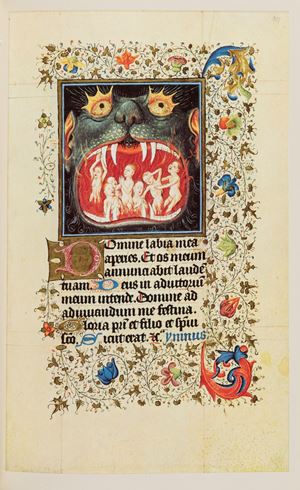 Domine labia mea
aperies. Et os meum
annunciabit laude
tuam. Deus in adiutorium
meum intende. Domine ad
adiuuandum me festina.
Gloria pri et filio et spiui
sco. Sicut erat. Ymnus